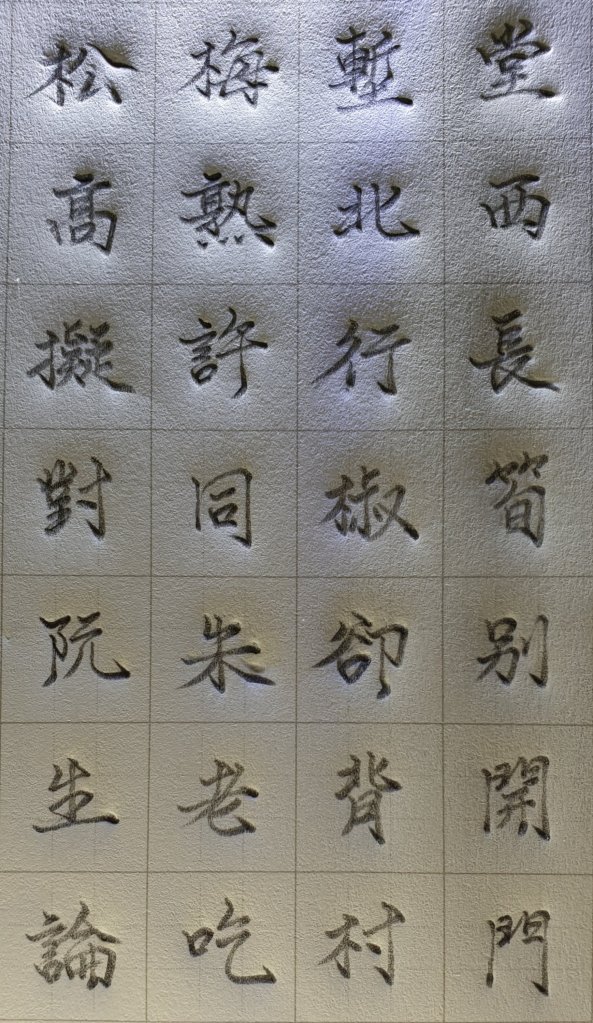 堂西長筍别開門
塹北行椒卻背村
梅熟許同朱老吃
松高擬對阮生論